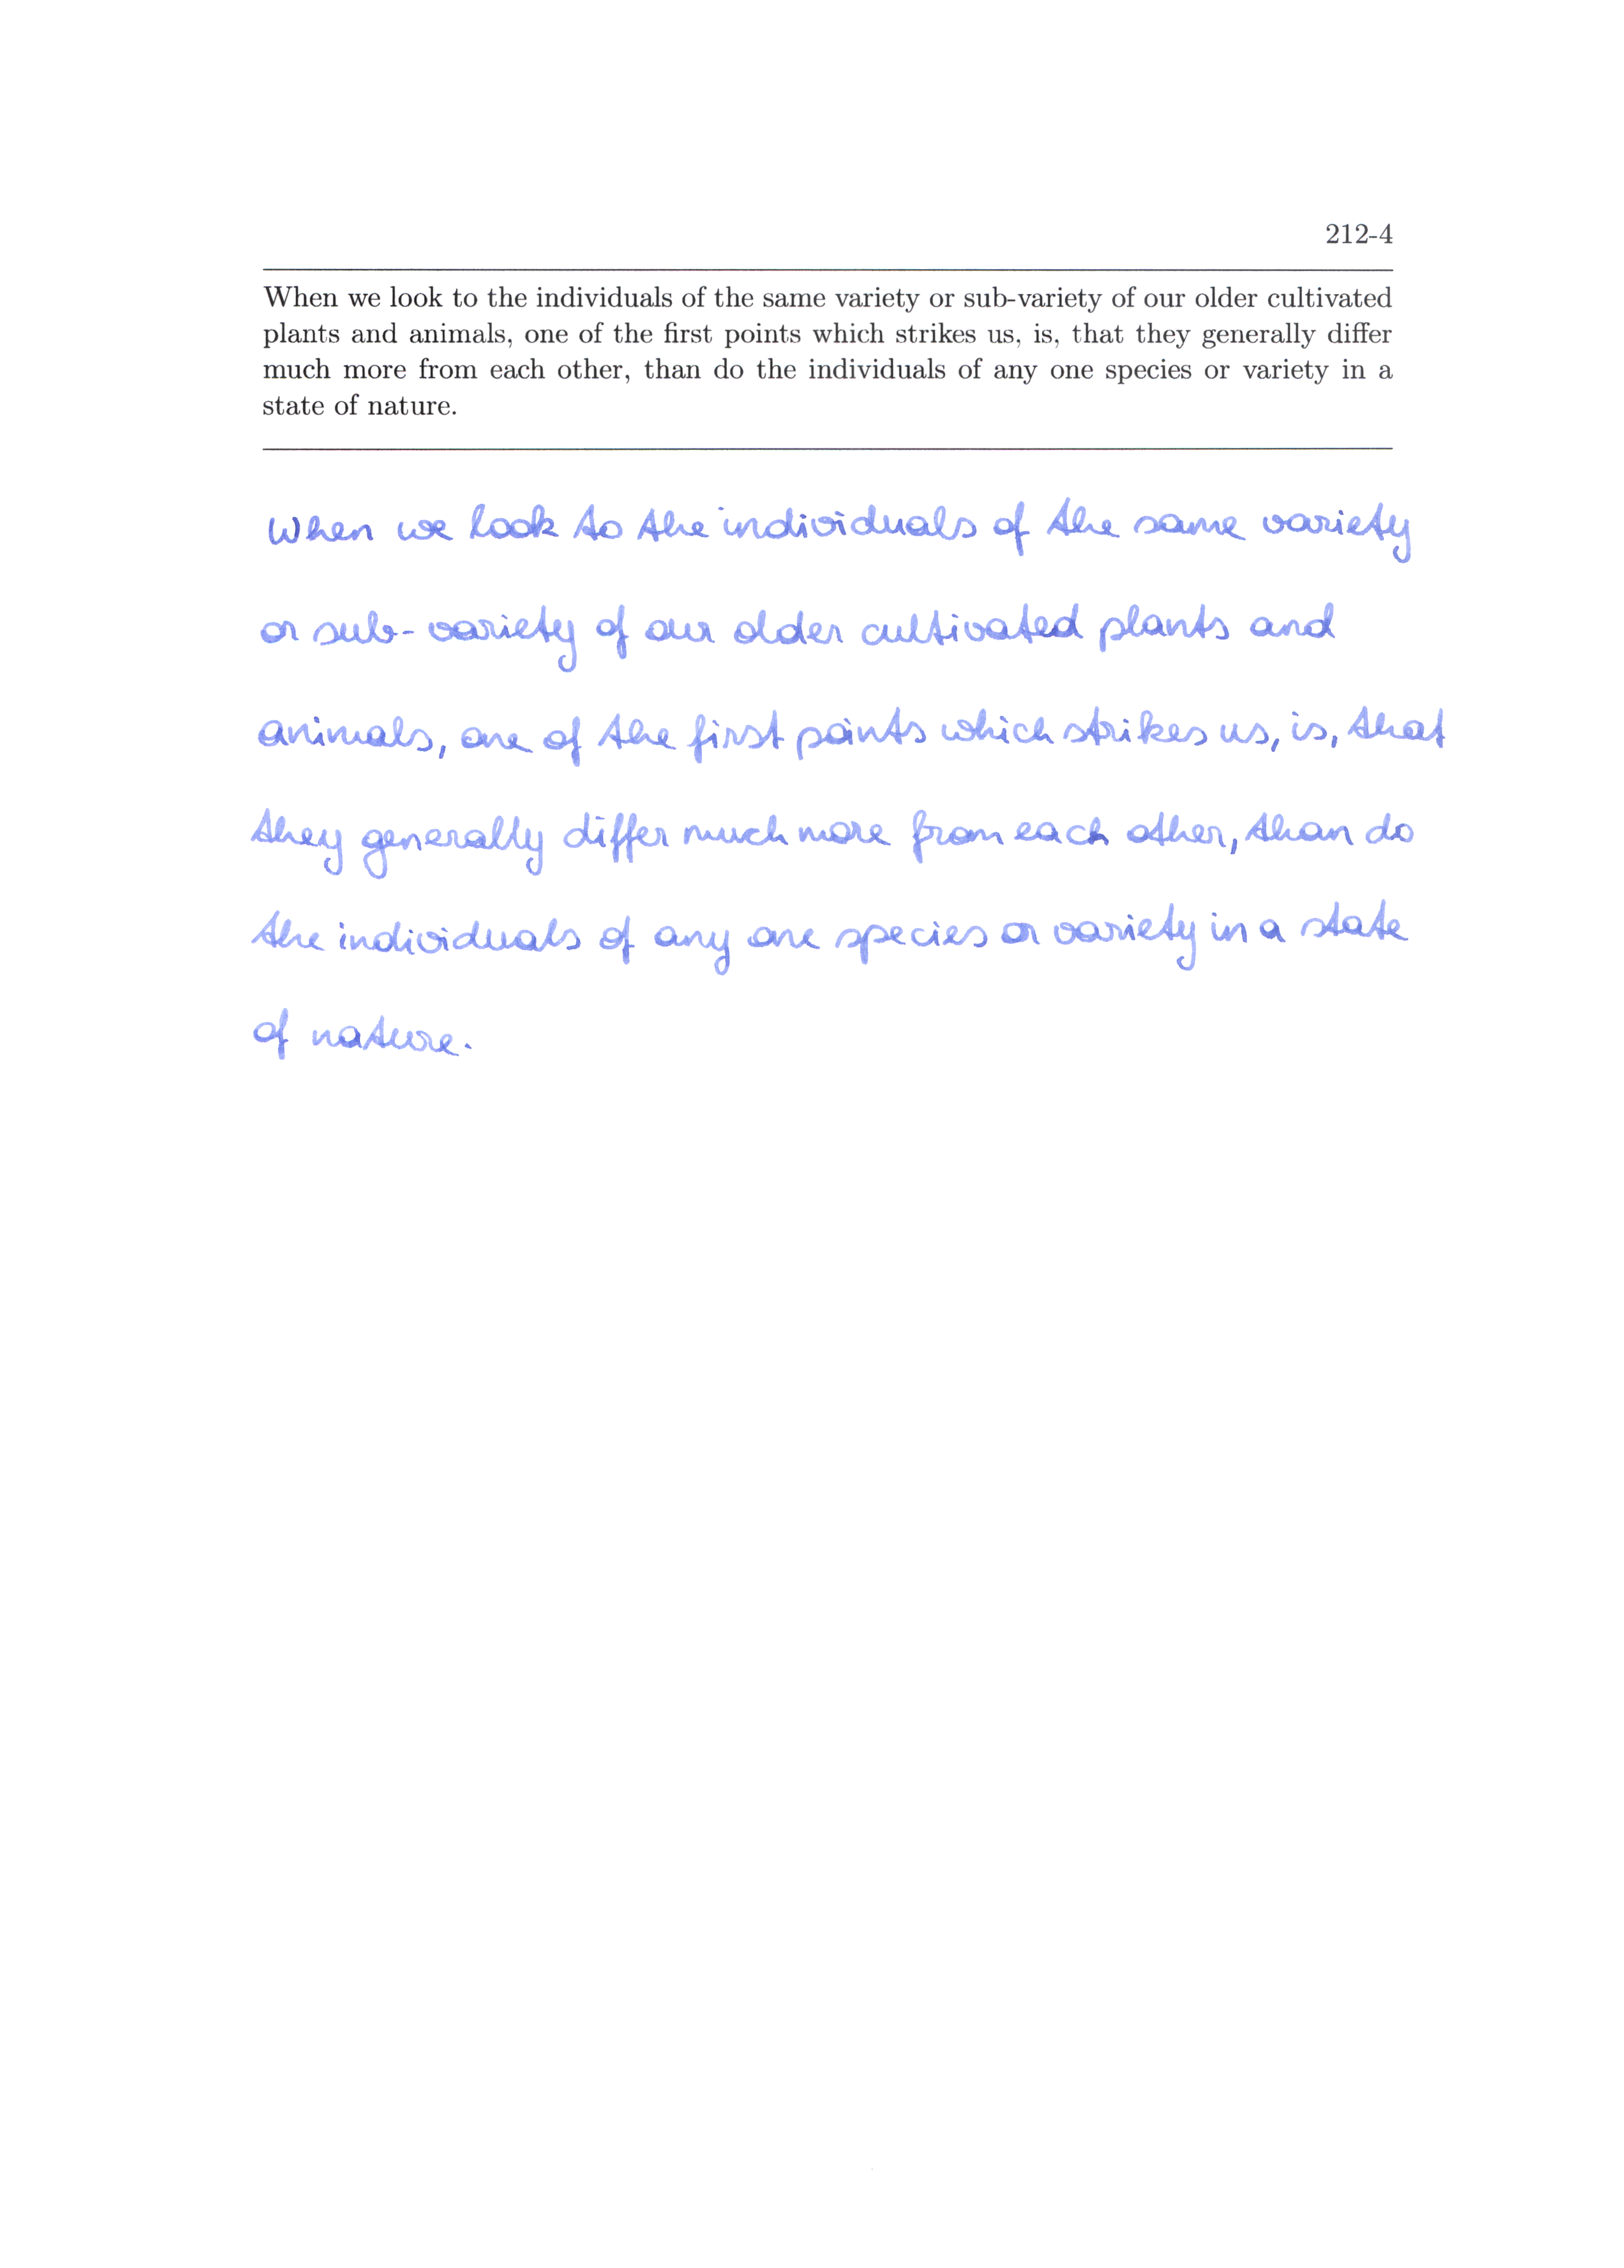 212-4
When we look to the individuals of the same variety or sub-variety of our older cultivated
plants and animals, one of the first points which strikes us, is, that they generally differ
much more from each other, than do the individuals of any one species or variety in a
state of nature.
When we look to the individuals of the same variety
or sub-variety of our older cultivated plants and
animals, one of the first points which strikes us, is, that
they generally differ much more from each other, than do
the individuals of any one species or variety in a state
of nature.